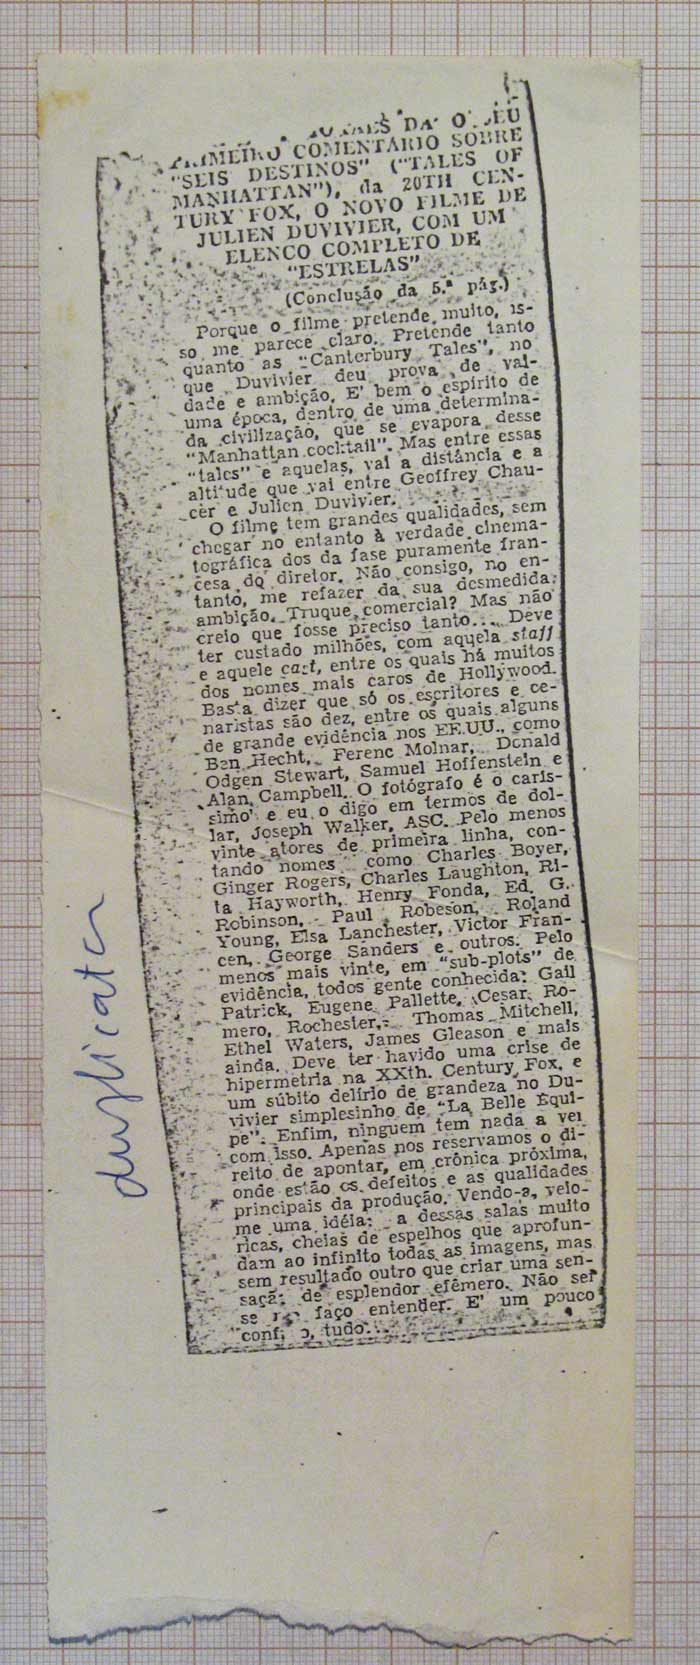 DÁ O SEU
PRIMEIRO COMENTÁRIO SOBRE
"SEIS DESTINOS" ("TALES OF
MANHATTAN"), da 20TH CEN-
TURY FOX, O NOVO FILME DE
JULIEN DUVIVIER, COM UM
ELENCO COMPLETO DE
"ESTRELAS"
(Conclusão da 5.ª pág.)
Porque o filme pretende muito, is-
so me parece claro. Pretende tanto
quanto as "Canterbury Tales", no
que Duvivier deu prova de vai-
dade e ambição. E' bem o espírito de
uma época, dentro de uma determina-
da civilização, que se evapora desse
"Manhattan cocktail". Mas entre essas
"tales" e aquelas, vai a distância e a
altitude que vai entre Geoffrey Chau-
cer e Julien Duvivier.
O filme tem grandes qualidades, sem
chegar no entanto à verdade cinema-
tográfica dos da fase puramente fran-
cesa do diretor. Não consigo, no en-
tanto, me refazer da sua desmedida
ambição. Truque comercial? Mas não
creio que fosse preciso tanto... Deve
ter custado milhões, com aquela staff
e aquele cast, entre os quais há muitos
dos nomes mais caros de Hollywood.
Basta dizer que só os escritores e ce-
naristas são dez, entre os quais alguns
de grande evidência nos EE.UU., como
Ben Hecht, Ferenc Molnar, Donald
Odgen Stewart, Samuel Hoffenstein e
Alan Campbell. O fotógrafo é o carís-
simo e eu o digo em termos de dol-
lar, Joseph Walker, ASC. Pelo menos
vinte atores de primeira linha, con-
tando nomes como Charles Boyer,
Ginger Rogers, Charles Laughton, Ri-
ta Hayworth, Henry Fonda, Ed. G.
Robinson, Paul Robeson, Roland
Young, Elsa Lanchester, Victor Fran-
cen, George Sanders e outros. Pelo
menos mais vinte, em "sub-plots" de
evidência, todos gente conhecida: Gail
Patrick, Eugene Pallette, Cesar Ro-
mero, Rochester, Thomas Mitchell,
Ethel Waters, James Gleason e mais
ainda. Deve ter havido uma crise de
hipermetria na XXth. Century Fox, e
um súbito delírio de grandeza no Du-
vivier simplesinho de "La Belle Equi-
pe". Enfim, ninguem tem nada a vei
com isso. Apenas nos reservamos o di-
reito de apontar, em crônica próxima,
onde estão os defeitos e as qualidades
principais da produção. Vendo-a, veio-
me uma idéia: a dessas salas muito
ricas, cheias de espelhos que aprofun-
dam ao infinito todas as imagens, mas
sem resultado outro que criar uma sen-
sação de esplendor efêmero. Não sei
se faço entender. E' um pouco
tudo...
duplicata